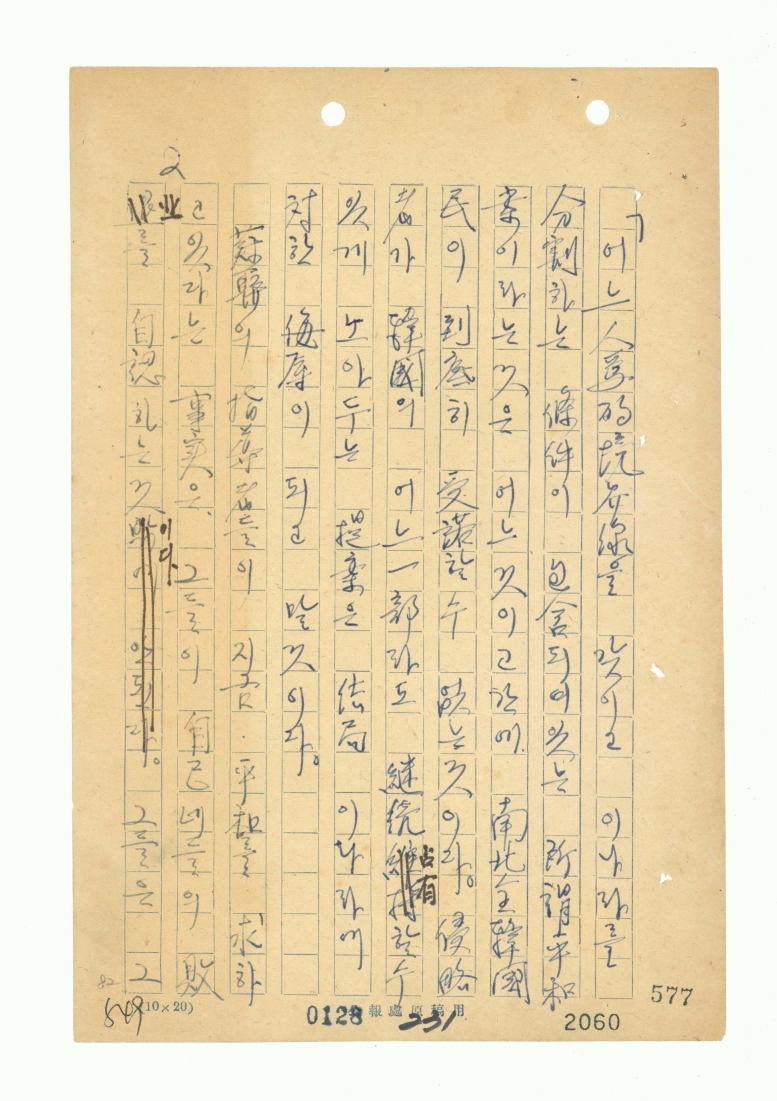 「어느 人爲的境界線을 갖이고 이나라를
分割하는 條件이 包含되여있는 所謂平和
案이라는것은 어느것이고간에 南北全韓國
民이 到底히 受諾할수 없는것이다。 侵略
者가 韓國의 어느一部라도 継続 占有할수
있게 노아두는 提案은 結局 이나라에
対한 侮辱이 되고 말것이다。
蘇聯의 指導者들이 지금 平和를 求하
고 있다는 事実은 그들이 自己네들의 敗
를 自認하는것이다。 그들은 그
2
(10×20)
報處原稿用
0128
231
2060
577
549
82